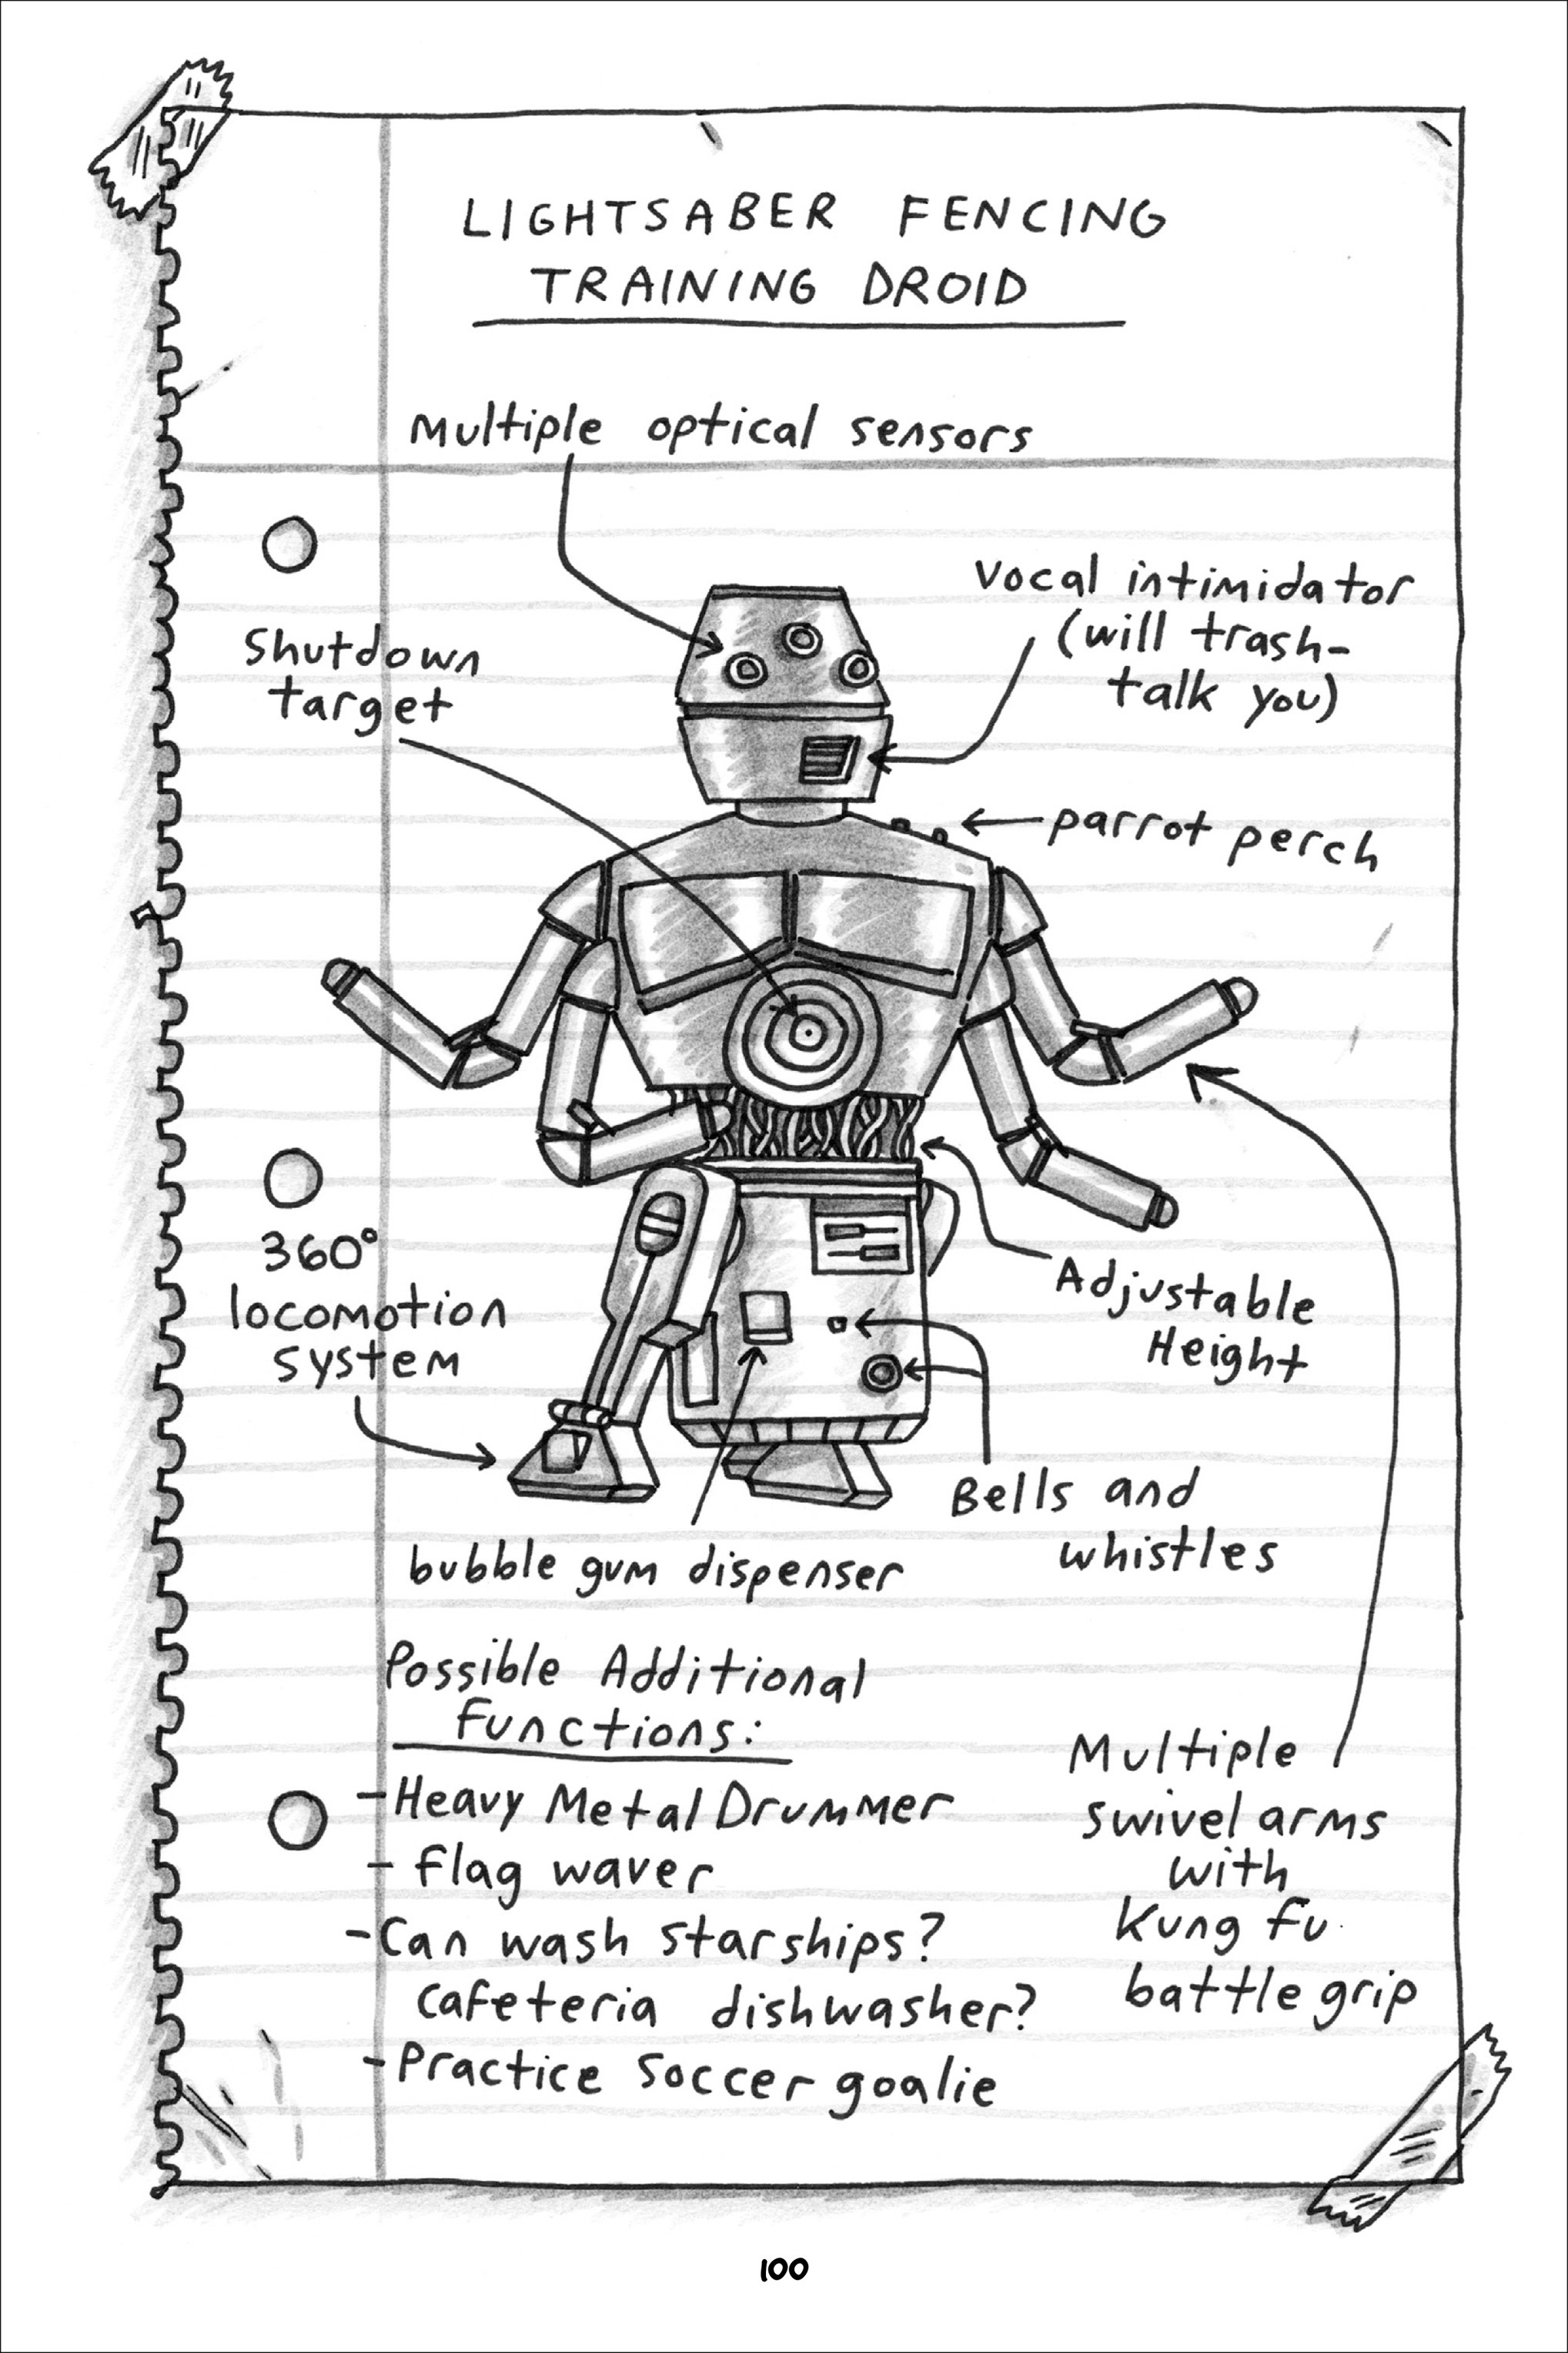 LIGHTSABER FENCING
TRAINING DROID
Multiple optical sensors
Vocal intimidator
(will trash-
talk you)
Shutdown
target
parrot perch
360°
locomotion
system
Adjustable
Height
Bells and
whistles
bubble gum dispenser
Possible Additional
Functions:
-Heavy Metal Drummer
- Flag waver
-Can wash starships?
Cafeteria dishwasher?
-Practice Soccer goalie
Multiple
swivel arms
with
Kung Fu
battle grip
100